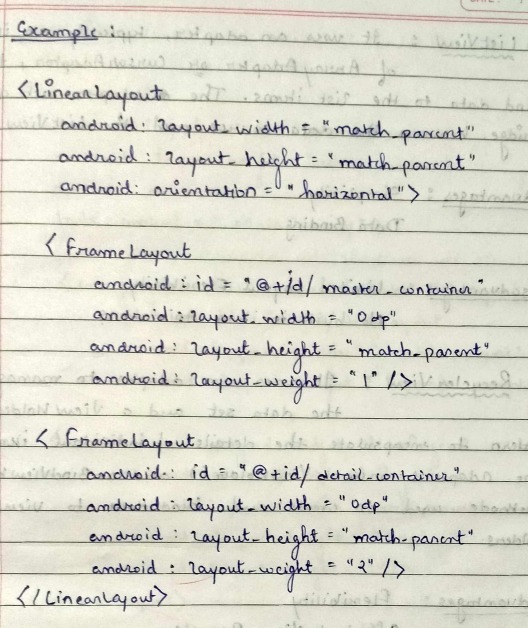 Example :
<LinearLayout
android: layout_width = "match_parent"
android : layout_height = "match_parent"
android: orientation = "horizontal">
<FrameLayout
android : id = "@+id/ master_container"
android : layout_width = "0dp"
android : layout_height = "match_parent"
android : layout_weight = "1" />
<FrameLayout
android : id = "@+id/ detail_container"
android : layout_width = "0dp"
android : layout_height = "match_parent"
android : layout_weight = "2" />
</LinearLayout>